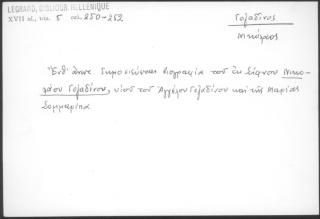 LEGRAND, BIBLIOGR. HELLENIQUE
XVII s., τόμ. 5 σελ. 250-252
Γοζαδίνος
Νικόλαος
Ἔνθ' ἀνωτ. δημοσιεύεται βιογραφία τοῦ ἐκ Σίφνου Νικο-
λάου Γοζαδίνου, υἱοῦ τοῦ Ἀγγέλου Γοζαδίνου καὶ τῆς Μαρίας
Σομμαρίπα